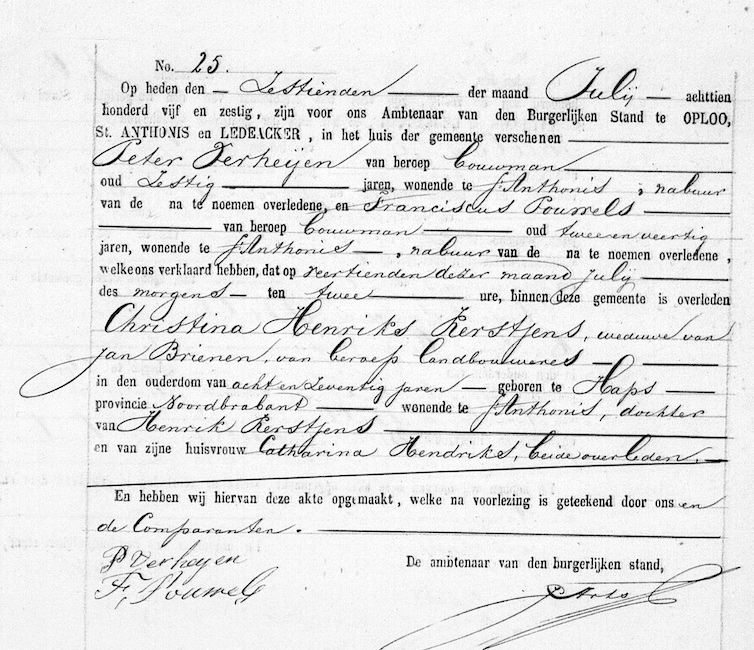 No. 25.
Op heden den Zestienden der maand Julij achttien
honderd vijf en zestig, zijn voor ons Ambtenaar van den Burgerlijken Stand te OPLOO,
St. ANTHONIS en LEDEACKER, in het huis der gemeente verschenen
Peter Verheijen van beroep bouwman
oud Zestig jaren, wonende te St Anthonis, nabuur
van de na te noemen overledene, en Franciscus Pouwels
van beroep bouwman oud twee en veertig
jaren, wonende te St Anthonis, nabuur van de na te noemen overledene,
welke ons verklaard hebben, dat op veertienden dezer maand julij
des morgens ten twee ure, binnen deze gemeente is overleden
Christina Henriks Kerstjens, weduwe van
Jan Brienen, van beroep landbouweres
in den ouderdom van acht en Zeventig jaren geboren te Haps
provincie Noordbrabant wonende te St Anthonis, dochter
van Henrik Kerstjens
en van zijne huisvrouw Catharina Hendriks, beide overleden.
En hebben wij hiervan deze akte opgemaakt, welke na voorlezing is geteekend door ons en
de Comparanten.
P Verheyen
De ambtenaar van den burgerlijken stand,
F, Pouwels
Arts